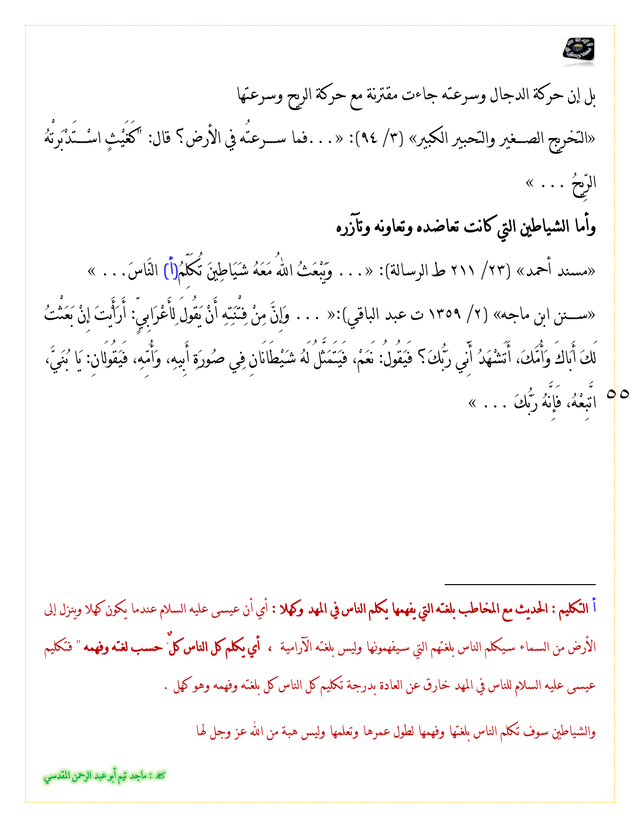 بل إن حركة الدجال وسرعته جاءت مقترنة مع حركة الريح وسرعتها
«التخريج الصغير والتحبير الكبير» (٣/ ٩٤): «...فما سرعتُه في الأرض؟ قال: "كَغَيْثٍ اسْتَدْبَرتْهُ
الرِّيحُ ... »
وأما الشياطين التي كانت تعاضده وتعاونه وتآزره
«مسند أحمد» (٢٣/ ٢١١ ط الرسالة): «... وَيَبْعَثُ اللهُ مَعَهُ شَيَاطِينَ تُكَلِّمُ(أ) النَّاسَ... »
«سنن ابن ماجه» (٢/ ١٣٥٩ ت عبد الباقي):« ... وَإِنَّ مِنْ فِتْنَتِهِ أَنْ يَقُولَ لِأَعْرَابِيٍّ: أَرَأَيْتَ إِنْ بَعَثْتُ
لَكَ أَبَاكَ وَأُمَّكَ، أَتَشْهَدُ أَنِّي رَبُّكَ؟ فَيَقُولُ: نَعَمْ، فَيَتَمَثَّلُ لَهُ شَيْطَانَانِ فِي صُورَةِ أَبِيهِ، وَأُمِّهِ، فَيَقُولَانِ: يَا بُنَيَّ،
اتَّبِعْهُ، فَإِنَّهُ رَبُّكَ ... »
٥٥
أ التكليم : الحديث مع المخاطب بلغته التي يفهمها يكلم الناس في المهد وكهلا : أي أن عيسى عليه السلام عندما يكون كهلا وينزل إلى
الأرض من السماء سيكلم الناس بلغتهم التي سيفهمونها وليس بلغته الآرامية ، أي يكلم كل الناس كلٌ حسب لغته وفهمه " فتكليم
عيسى عليه السلام للناس في المهد خارق عن العادة بدرجة تكليم كل الناس كل بلغته وفهمه وهو كهل .
والشياطين سوف تكلم الناس بلغتها وفهمها لطول عمرها وتعلمها وليس هبة من الله عز وجل لها
كتبه : ماجد تيم أبو عبد الرحمن المقدسي